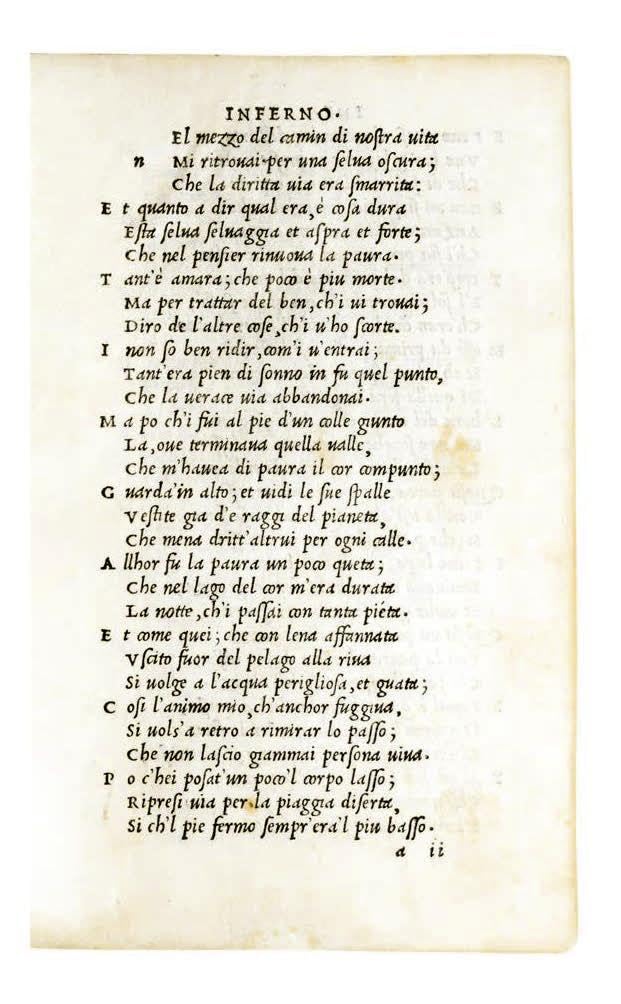 INFERNO.
El mezzo del camin di nostra uita
n Mi ritrouai per una selua oscura;
Che la diritta uia era smarrita:
E t quanto a dir qual era, è cosa dura
Esta selua seluaggia et aspra et forte;
Che nel pensier rinuoua la paura.
T ant'è amara; che poco è piu morte.
Ma per trattar del ben, ch'i ui trouai;
Diro de l'altre cose, ch'i u'ho scorte.
I non so ben ridir, com'i u'entrai;
Tant'era pien di sonno in su quel punto,
Che la uerace uia abbandonai.
M a po ch'i fui al pie d'un colle giunto
La, oue terminaua quella ualle,
Che m'hauea di paura il cor compunto;
G uarda'in alto; et uidi le sue spalle
Vestite gia d'e raggi del pianeta,
Che mena dritt'altrui per ogni calle.
A llhor fu la paura un poco queta;
Che nel lago del cor m'era durata
La notte, ch'i passai con tanta piéta.
E t come quei; che con lena affannata
Vscito fuor del pelago alla riua
Si uolge a l'acqua perigliosa, et guata;
C osi l'animo mio, ch'anchor fuggiua,
Si uols'a retro a rimirar lo passo;
Che non lascio giammai persona uiua.
P o c'hei posat'un poco'l corpo lasso;
Ripresi uia per la piaggia diserta,
Si ch'l pie fermo sempr'era'l piu basso.
a ii